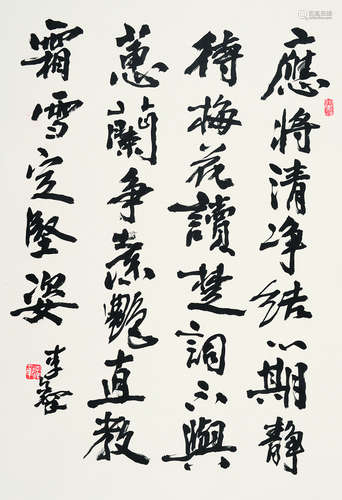 應將清净結心期静
待梅花讀楚詞不與
蕙蘭争素艷直教
霜雪定堅姿
李鐸